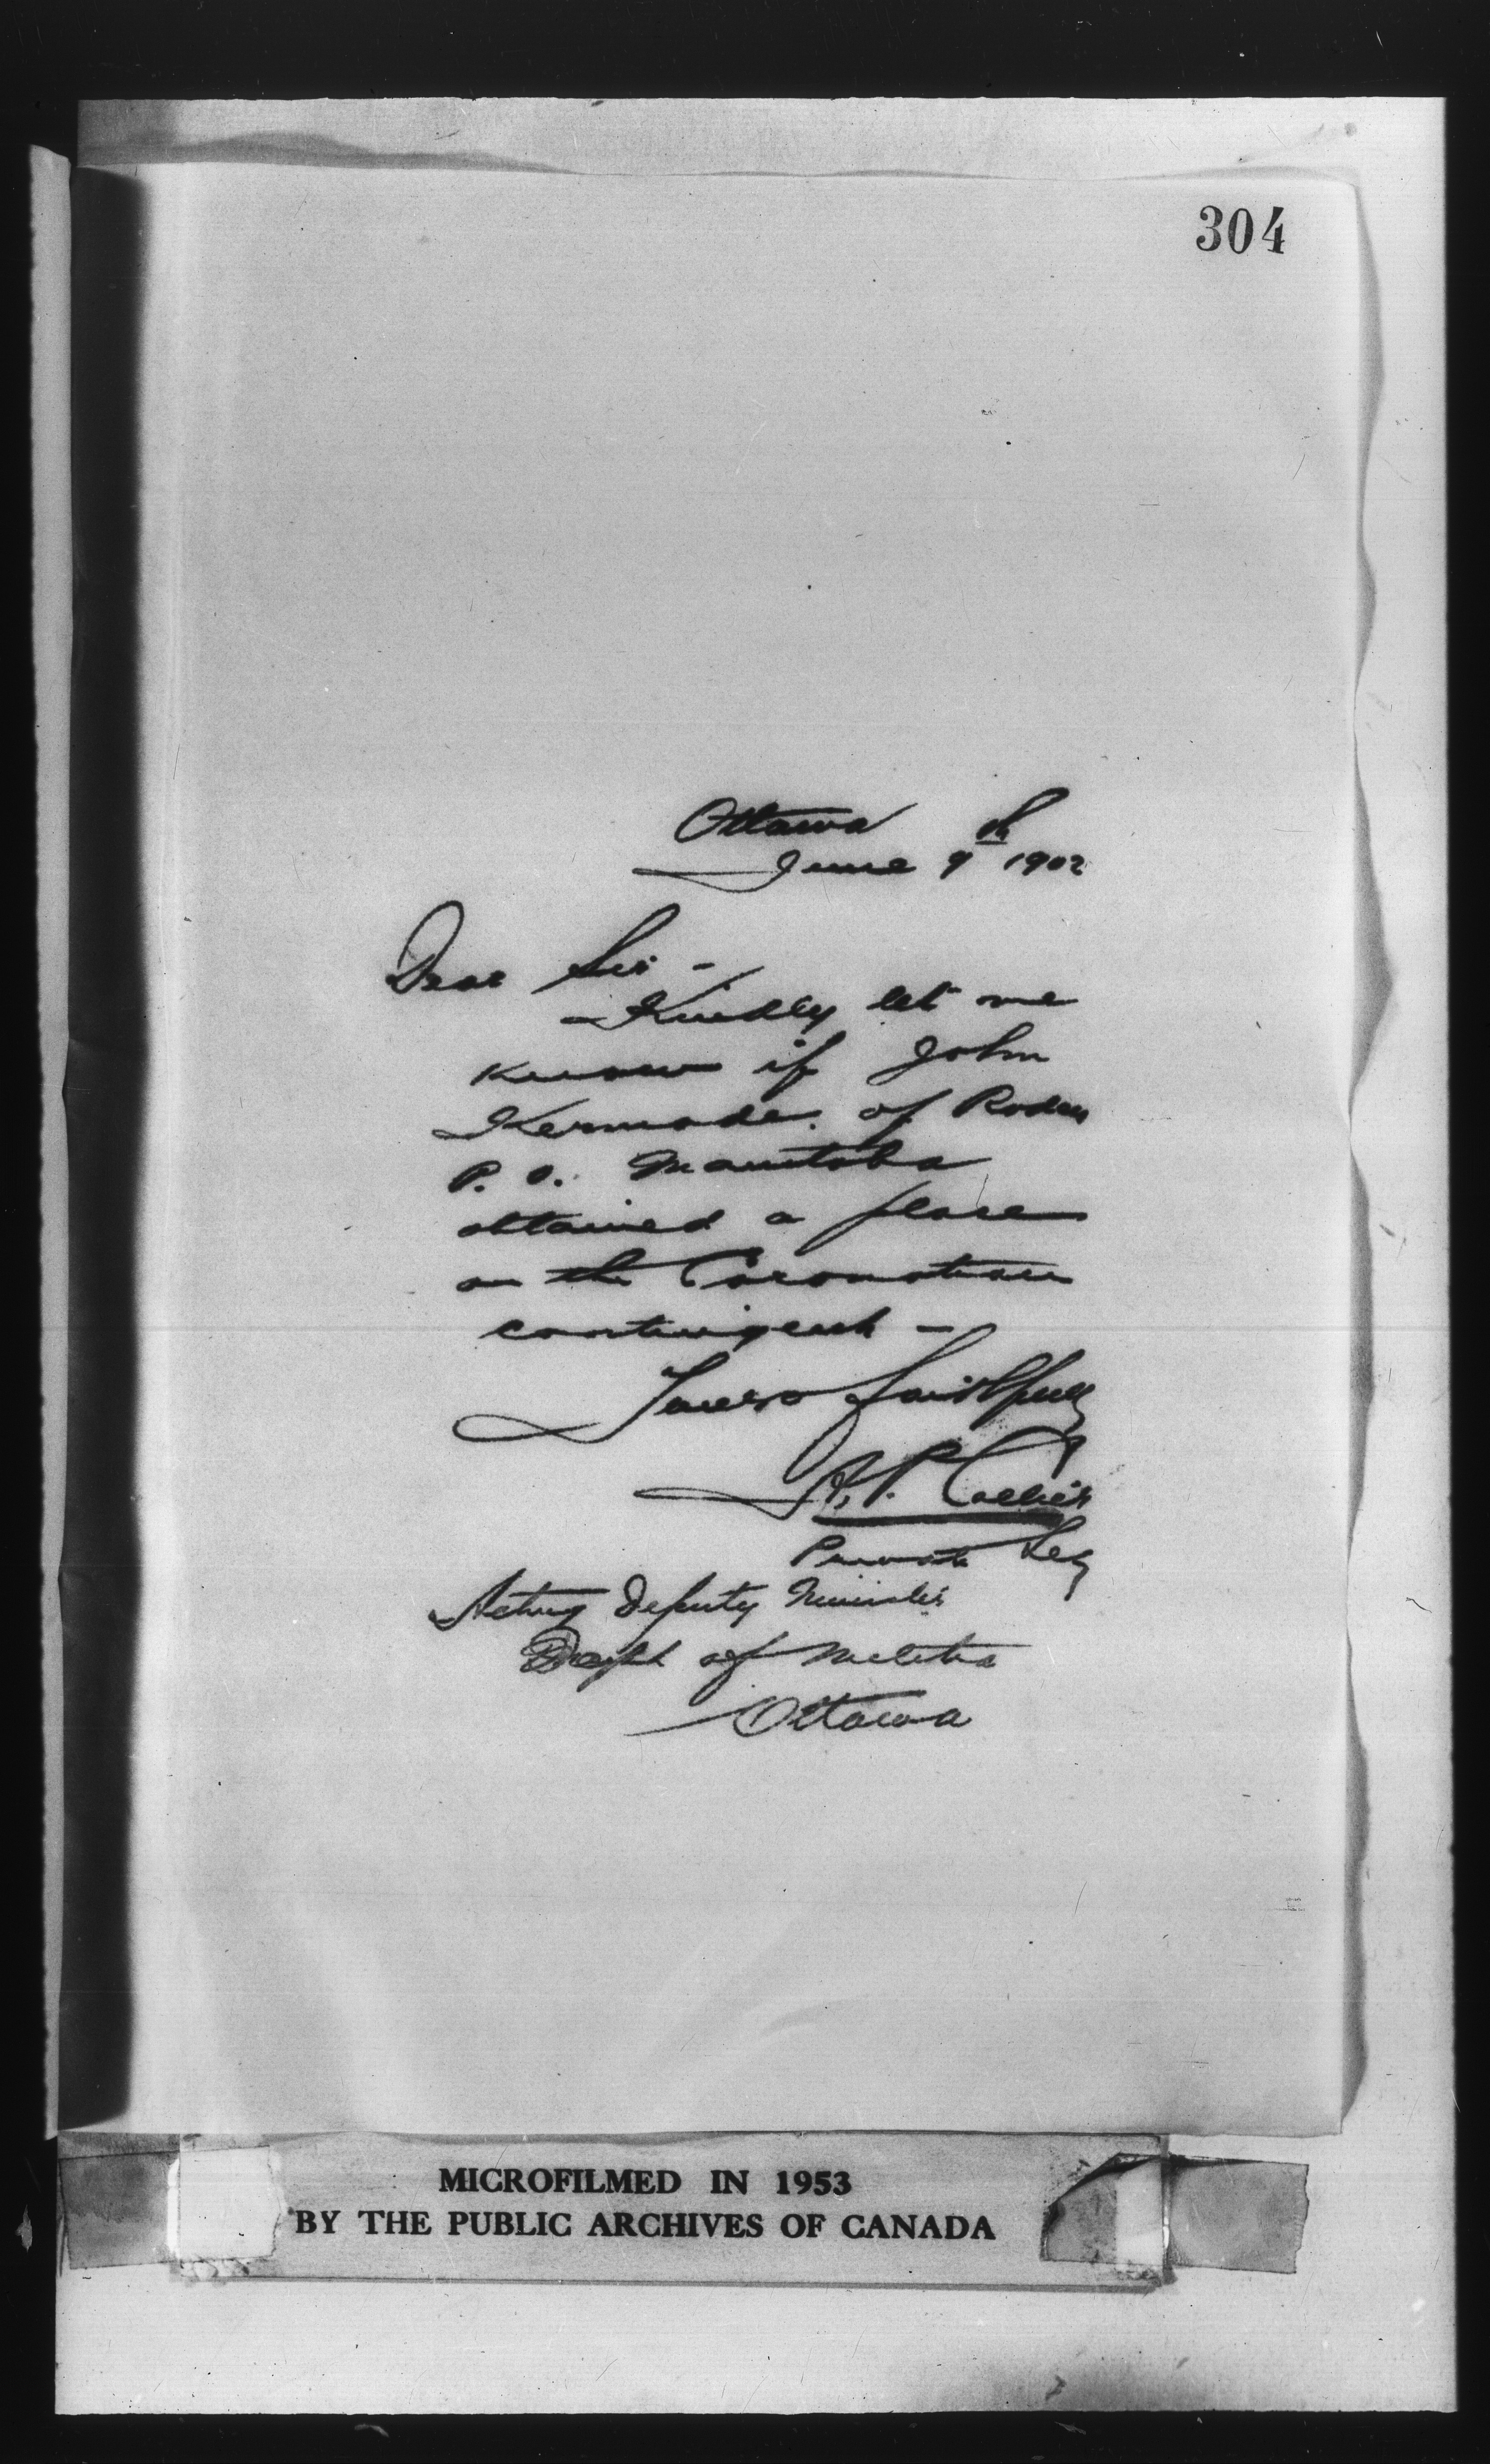 304
Ottawa
June 9th 1902
Dear Sir -
Kindly let me
know if John
Kermode of Roden
P. O. Manitoba
obtained a place
on the Coronation
contingent -
Yours faithfully
A. P. Collier
Private Secy
Acting Deputy Minister
Dept of Militia
Ottawa
MICROFILMED IN 1953
BY THE PUBLIC ARCHIVES OF CANADA